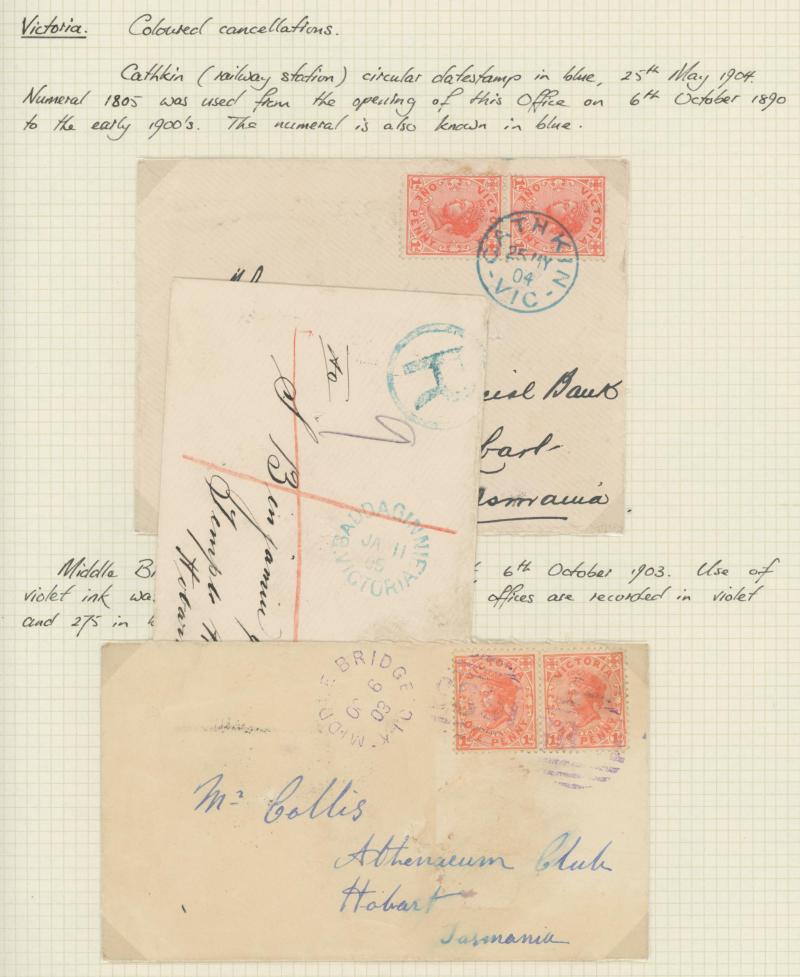 Victoria. Coloured cancellations.
Cathkin (railway station) circular datestamp in blue, 25th May 1904.
Numeral 1805 was used from the opening of this Office on 6th October 1890
to the early 1900's. The numeral is also known in blue.
VICTORIA
ONE PENNY
VICTORIA
ONE PENNY
CATHKIN
25 MY
04
VIC
cial Bank
bart
asmania
H
BADDAGINNIE
JA 11
05
VICTORIA
Benjamin
Temple
Hobar
Middle B 6th October 1903. Use of
violet ink wa offices are recorded in violet
and 275 in
MIDDLE BRIDGE
VICTORIA
ONE PENNY
VICTORIA
ONE PENNY
Mr Collis
Athenaeum Club
Hobart
Tasmania